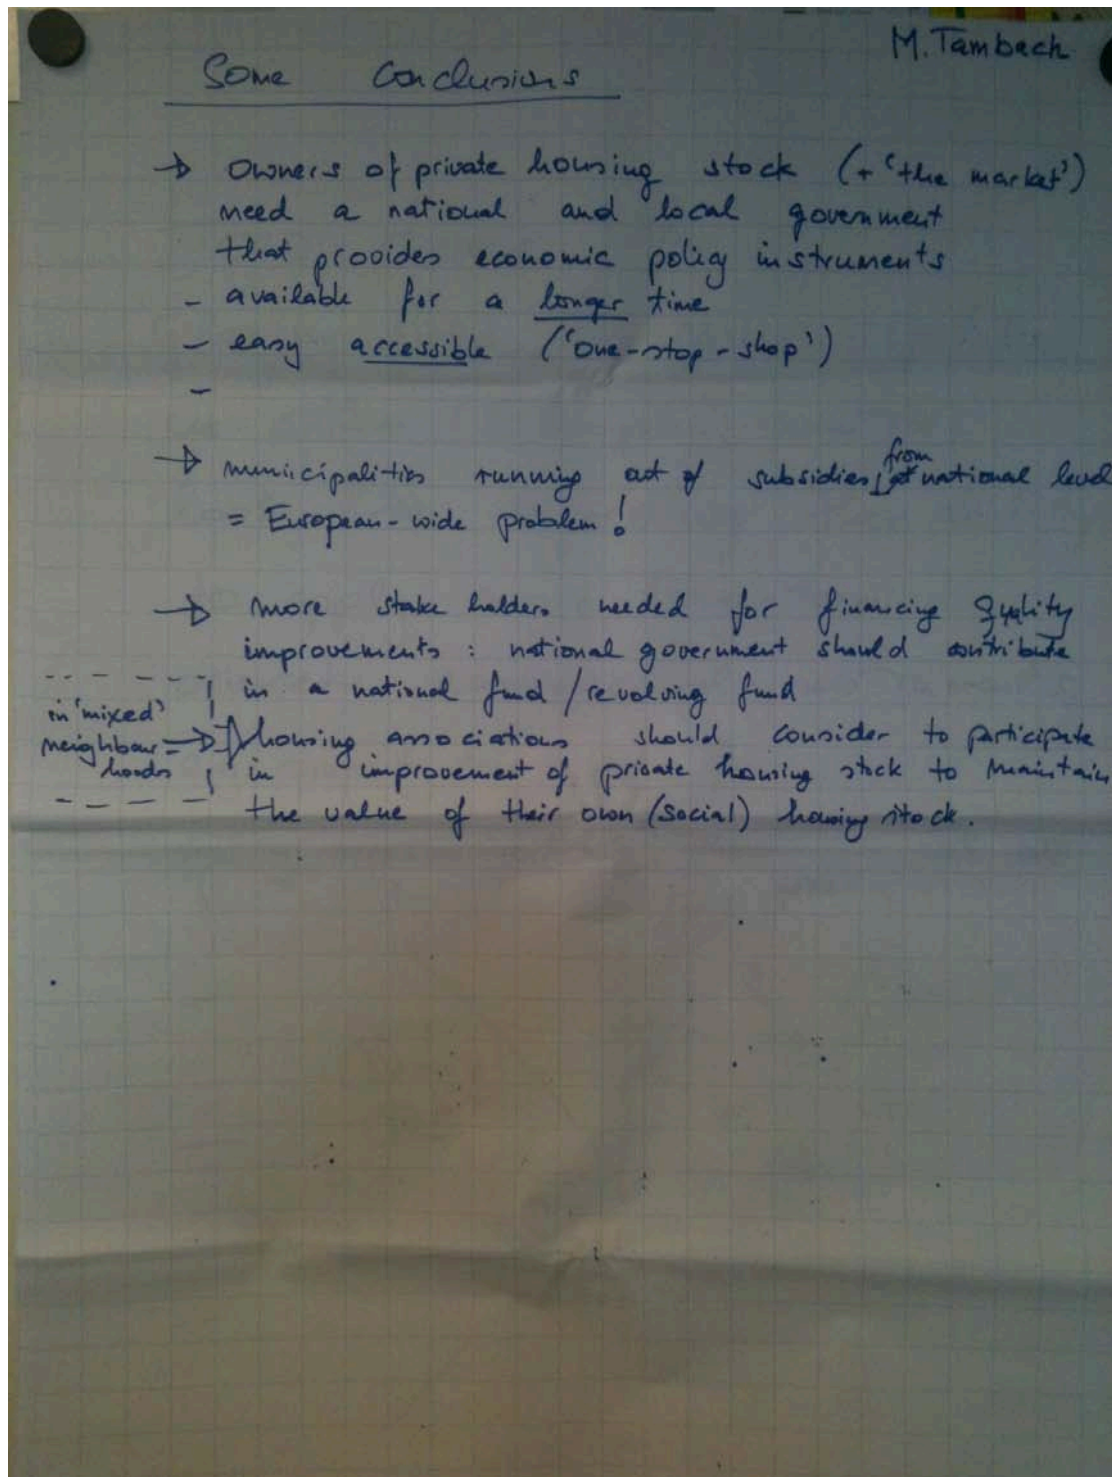 M. Tambach
Some Conclusions
→ Owners of private housing stock (+ 'the market')
need a national and local government
that provides economic policy instruments
- available for a longer time
- easy accessible ('one-stop-shop')
-
→ municipalities running out of subsidies from at national level
= European-wide problem!
→ more stake holders needed for financing quality
improvements: national government should contribute
in a national fund / revolving fund
in 'mixed'
neighbour=
hoods
→ housing associations should consider to participate
in improvement of private housing stock to maintain
the value of their own (social) housing stock.